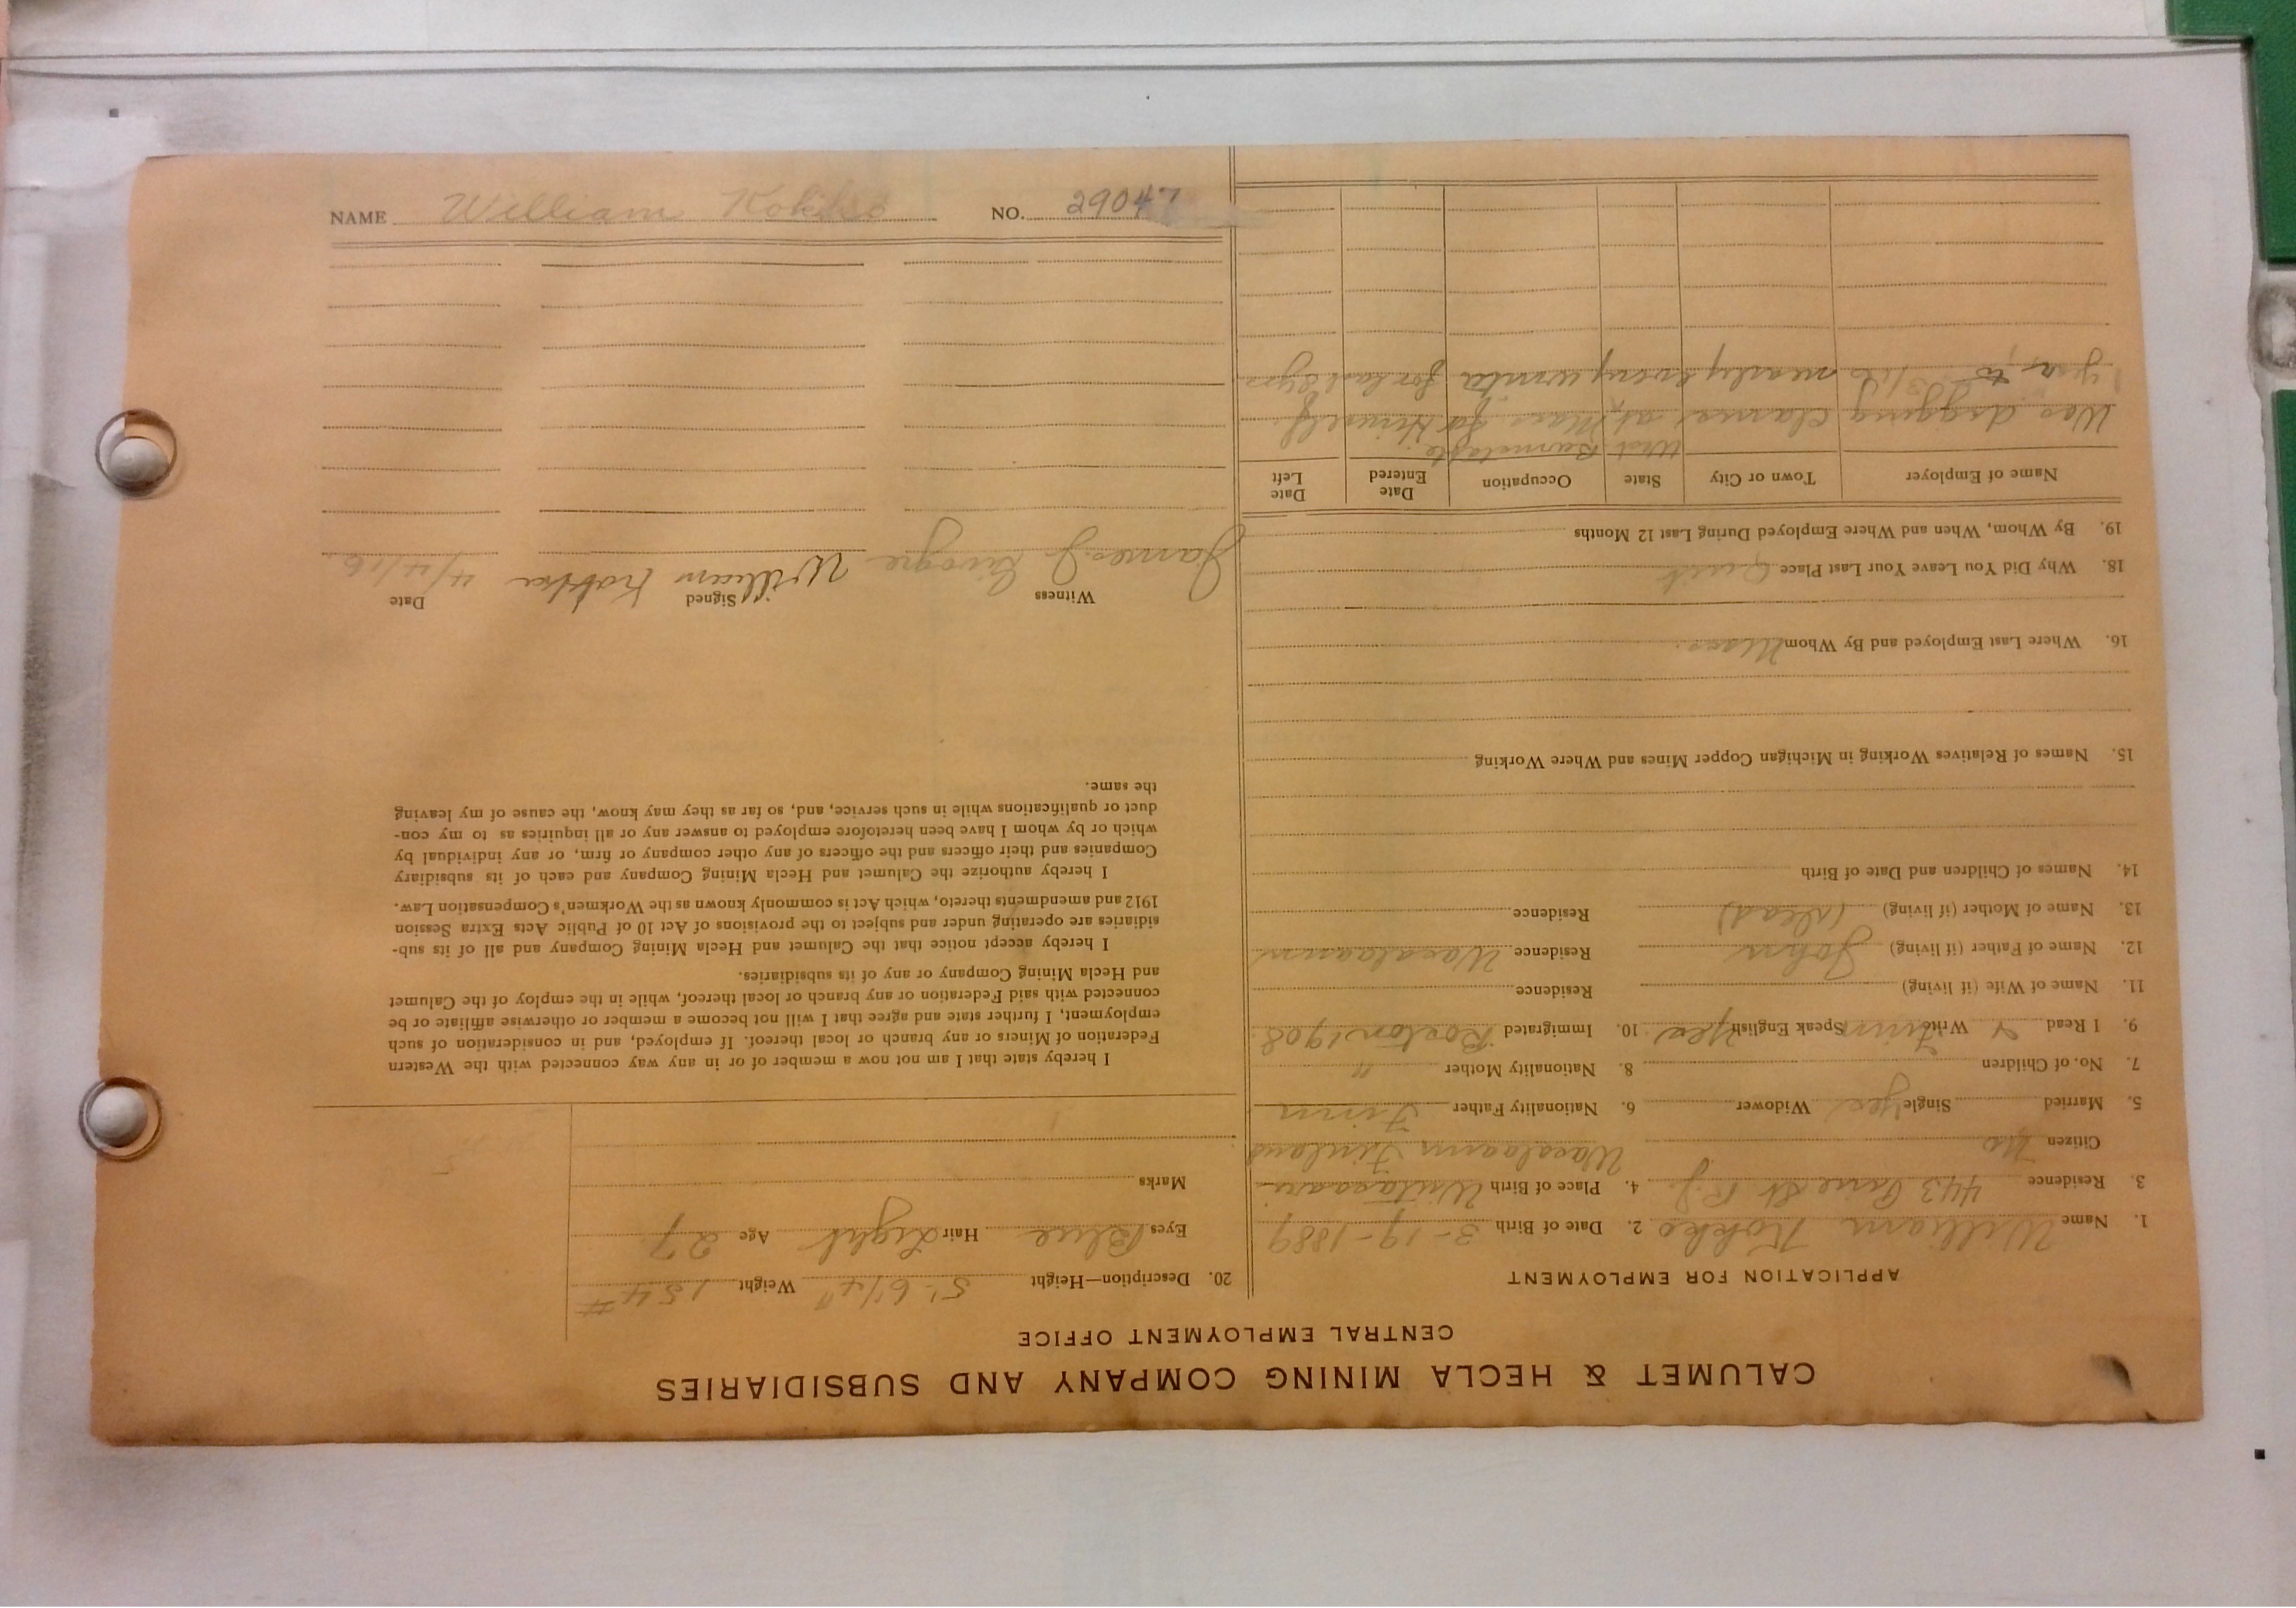 CALUMET & HECLA MINING COMPANY AND SUBSIDIARIES
CENTRAL EMPLOYMENT OFFICE
APPLICATION FOR EMPLOYMENT
1. Name William Kokko 2. Date of Birth 3-19-1889
3. Residence 443 Pine St R.J. 4. Place of Birth
Citizen No Finland
5. Married Single Yes Widower 6. Nationality Father Finn
7. No. of Children 8. Nationality Mother "
9. I Read Y Write Finn Speak English Yes 10. Immigrated Boston 1908
11. Name of Wife (if living) Residence
12. Name of Father (if living) John Residence
13. Name of Mother (if living) (Dead) Residence
14. Names of Children and Date of Birth
15. Names of Relatives Working in Michigan Copper Mines and Where Working
16. Where Last Employed and By Whom Mass.
18. Why Did You Leave Your Last Place Quit
19. By Whom, When and Where Employed During Last 12 Months
Name of Employer Town or City State Occupation Date Entered Date Left
West Barnstable
Was digging clams at Mass. for Himself
year to 3/16 nearly every winter for last 8 yrs
20. Description—Height 5' 6 1/4" Weight 154 #
Eyes Blue Hair Light Age 27
Marks
I hereby state that I am not now a member of or in any way connected with the Western
Federation of Miners or any branch or local thereof. If employed, and in consideration of such
employment, I further state and agree that I will not become a member or otherwise affiliate or be
connected with said Federation or any branch or local thereof, while in the employ of the Calumet
and Hecla Mining Company or any of its subsidiaries.
I hereby accept notice that the Calumet and Hecla Mining Company and all of its sub-
sidiaries are operating under and subject to the provisions of Act 10 of Public Acts Extra Session
1912 and amendments thereto, which Act is commonly known as the Workmen's Compensation Law.
I hereby authorize the Calumet and Hecla Mining Company and each of its subsidiary
Companies and their officers and the officers of any other company or firm, or any individual by
which or by whom I have been heretofore employed to answer any or all inquiries as to my con-
duct or qualifications while in such service, and, so far as they may know, the cause of my leaving
the same.
Witness Signed Date
James J. William Kokko 4/4/16.
NAME William Kokko NO. 29047